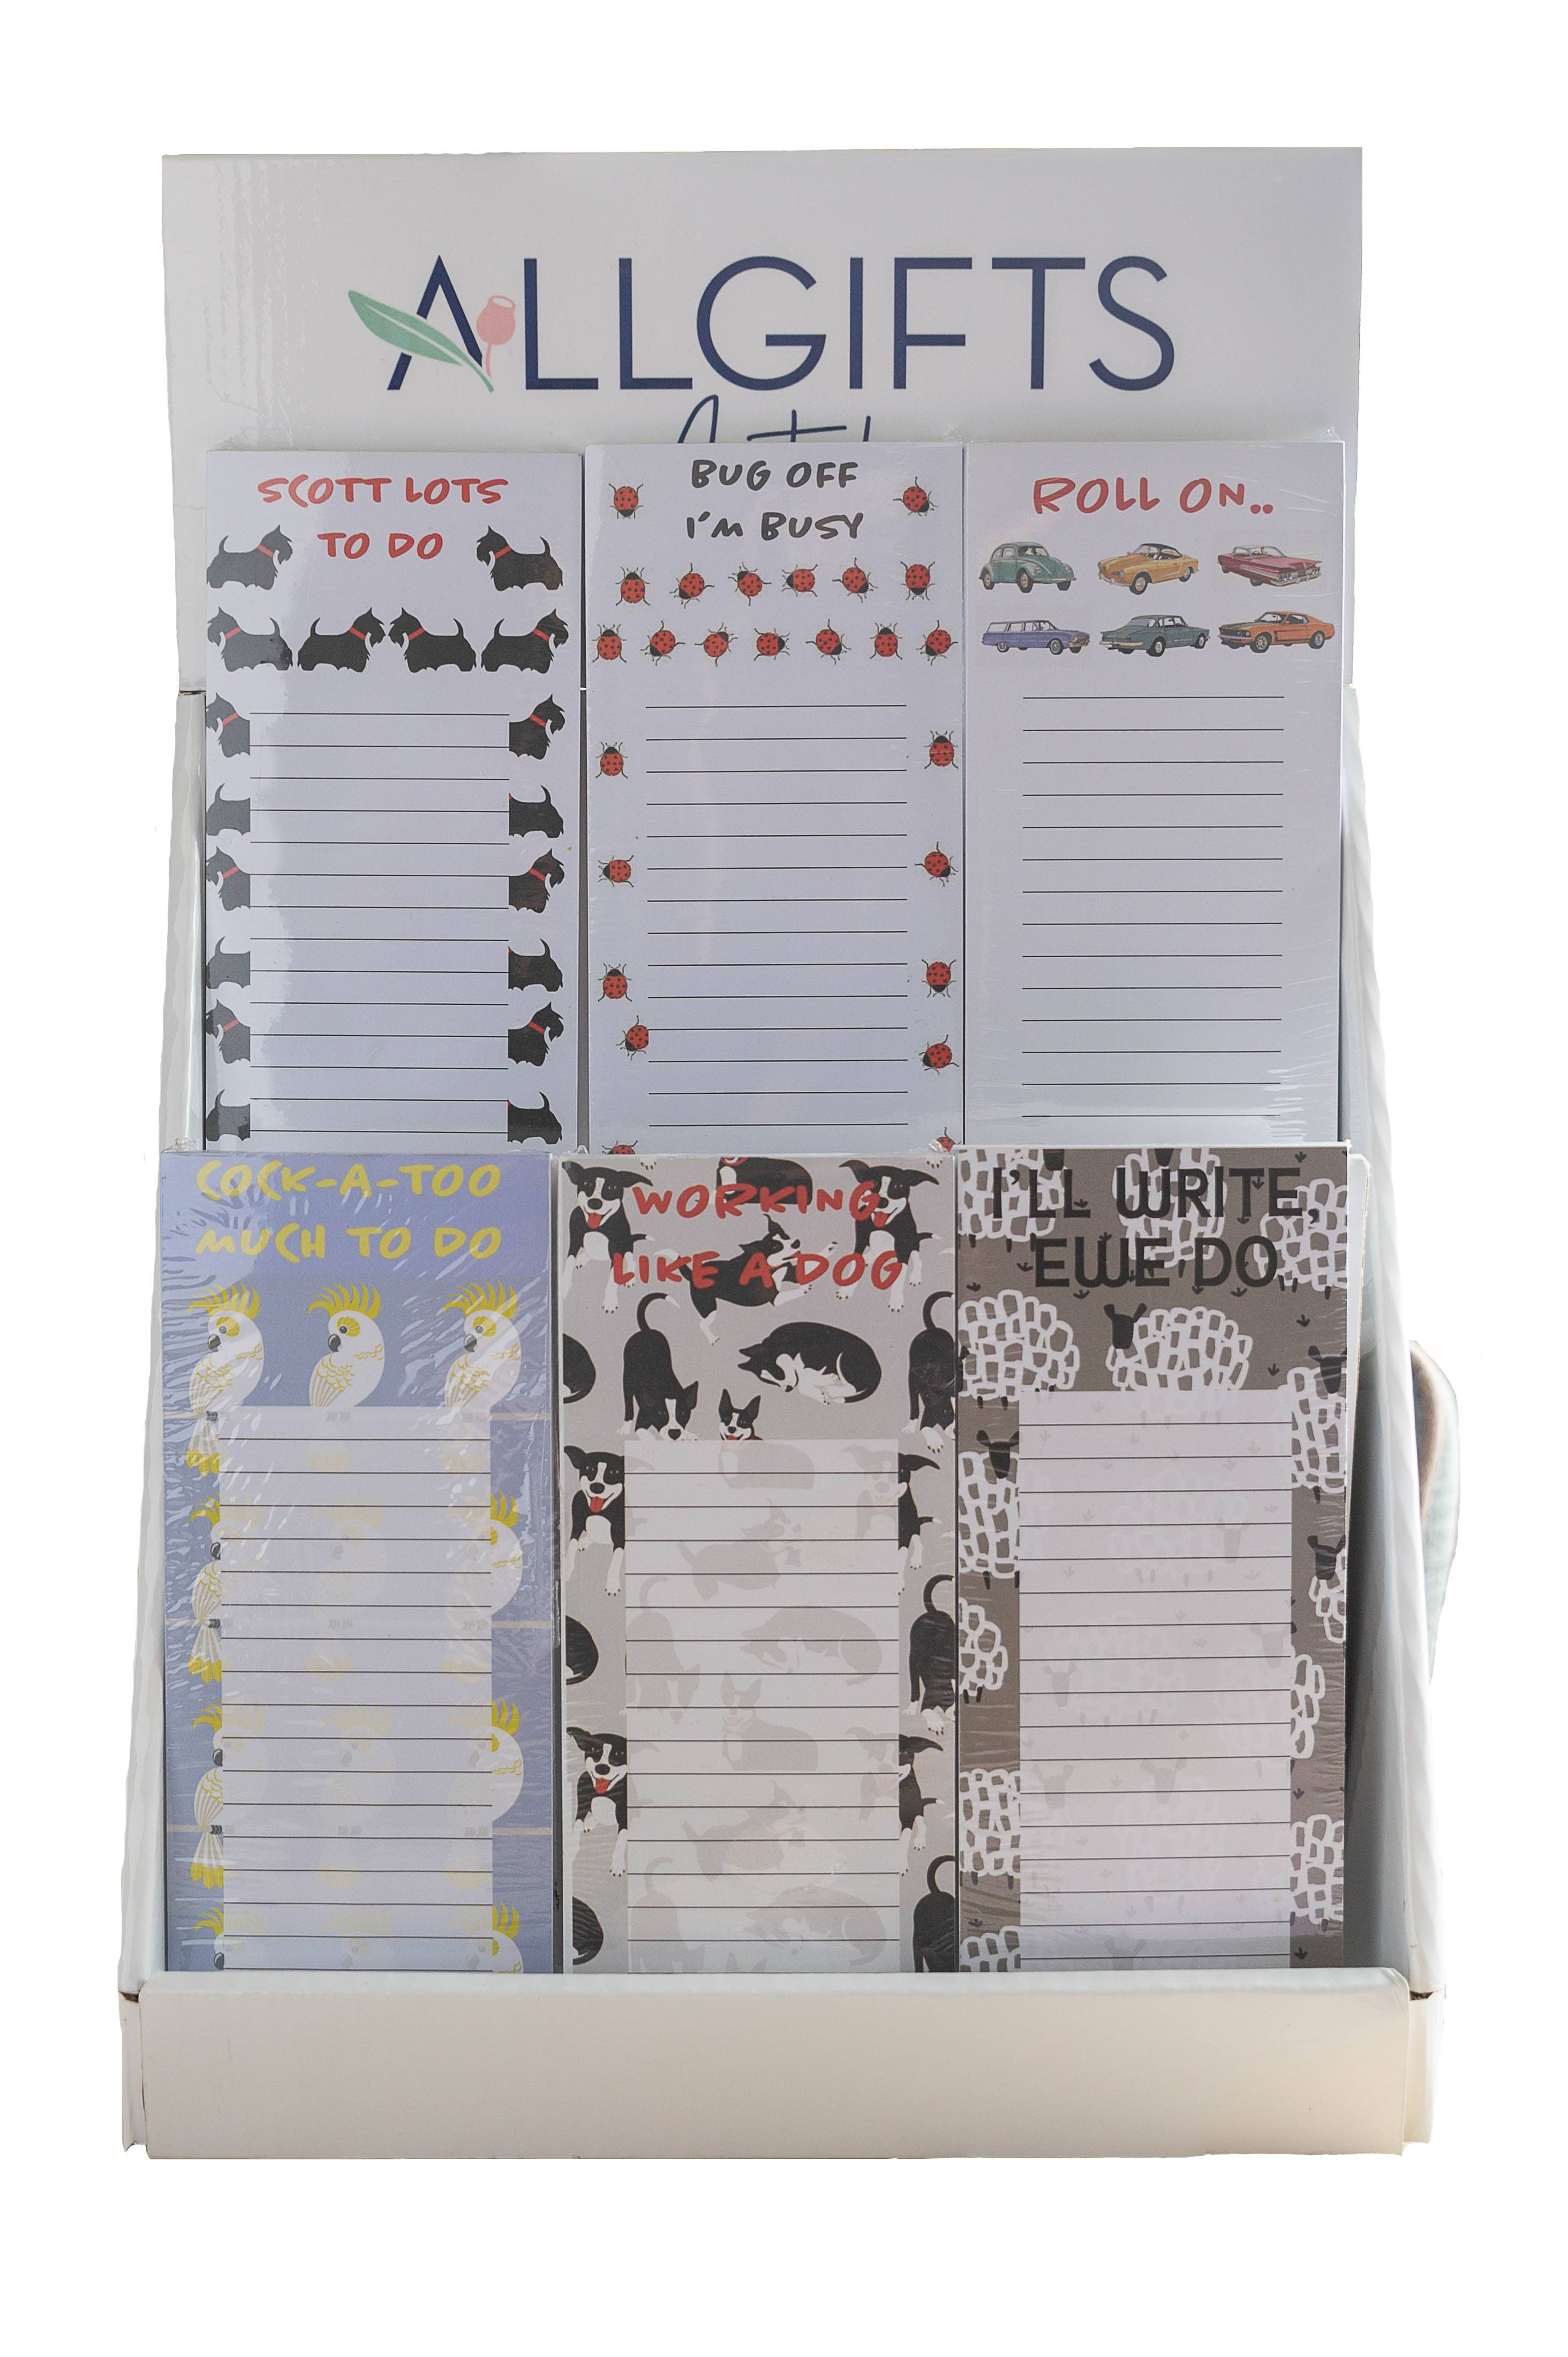 ALLGIFTS
SCOTT LOTS
TO DO
BUG OFF
I'M BUSY
ROLL ON..
COCK-A-TOO
MUCH TO DO
WORKING
LIKE A DOG
I'LL WRITE,
EWE DO..